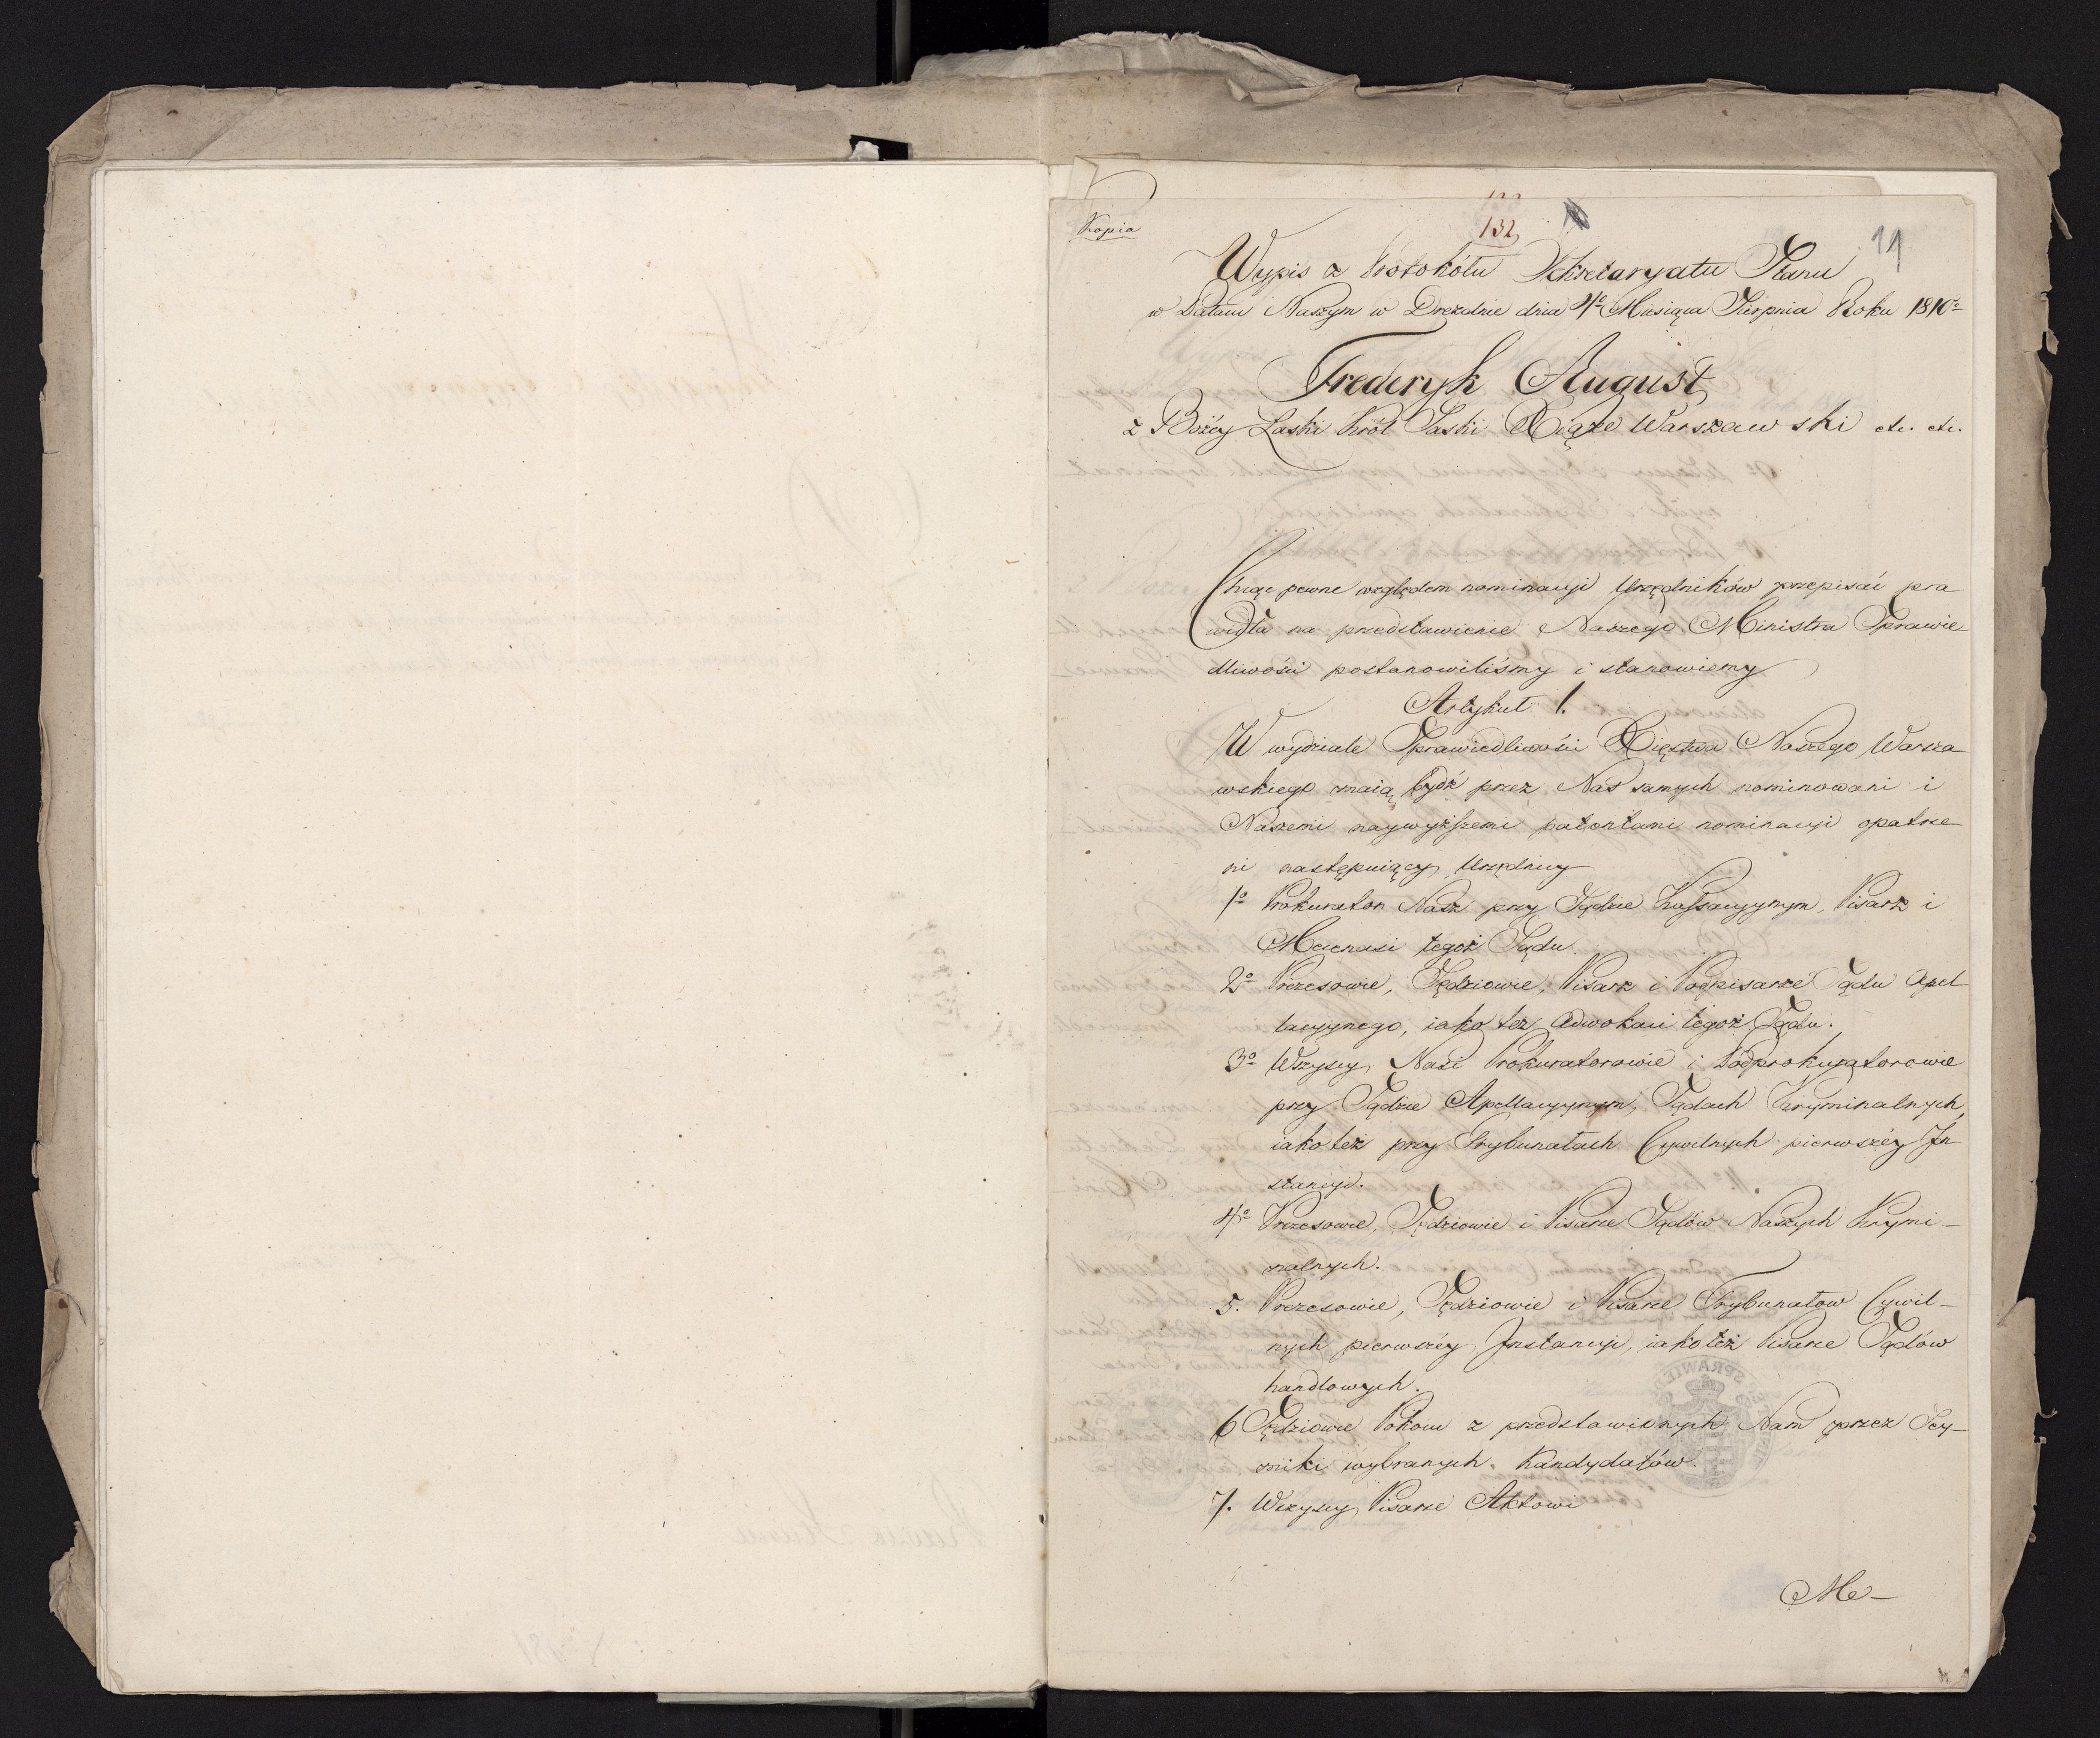 Kopia
132
11
Wypis z Protokółu Sekretaryatu Stanu
w Pałacu Naszym w Dreznie dnia 4o Miesiąca Sierpnia Roku 1810o
Frederyk August
z Bożéy Łaski Król Saski Xiąże Warszawski etc. etc.
Chcąc pewne względem nominacyi Urzędników przepisać pra
widła na przedstawienie Naszego Ministra Sprawie
dliwości postanowiliśmy i stanowiemy
Artykuł 1.
W wydziale Sprawiedliwości Xięstwa Naszego Warsza
wskiego maią bydź przez Nas samych nominowani i
Naszemi naywyższemi patentami nominacyi opatrze
ni następuiący Urzędnicy
1o Prokurator Nasz przy Sądzie Kassacyynym, Pisarz i
Mecenasi tegoż Sądu.
2o Prezesowie, Sędziowie, Pisarz i Podpisarze Sądu Apel
lacyynego, iako też Adwokaci tegoż Sądu.
3o Wszyscy Nasi Prokuratorowie i Podprokuratorowie
przy Sądzie Apellacyynym, Sądach Kryminalnych,
iako też przy Trybunałach Cywilnych pierwszéy In
stancyi.
4o Prezesowie, Sędziowie i Pisarze Sądów Naszych Krymi-
nalnych.
5. Prezesowie, Sędziowie i Pisarze Trybunałow Cywil-
nych pierwszéy Instancyi, iako też Pisarze Sądów
handlowych.
6 Sędziowie Pokoiu z przedstawionych Nam przez Sey-
miki wybranych Kandydatów.
7. Wszyscy Pisarze Aktowi
Me-